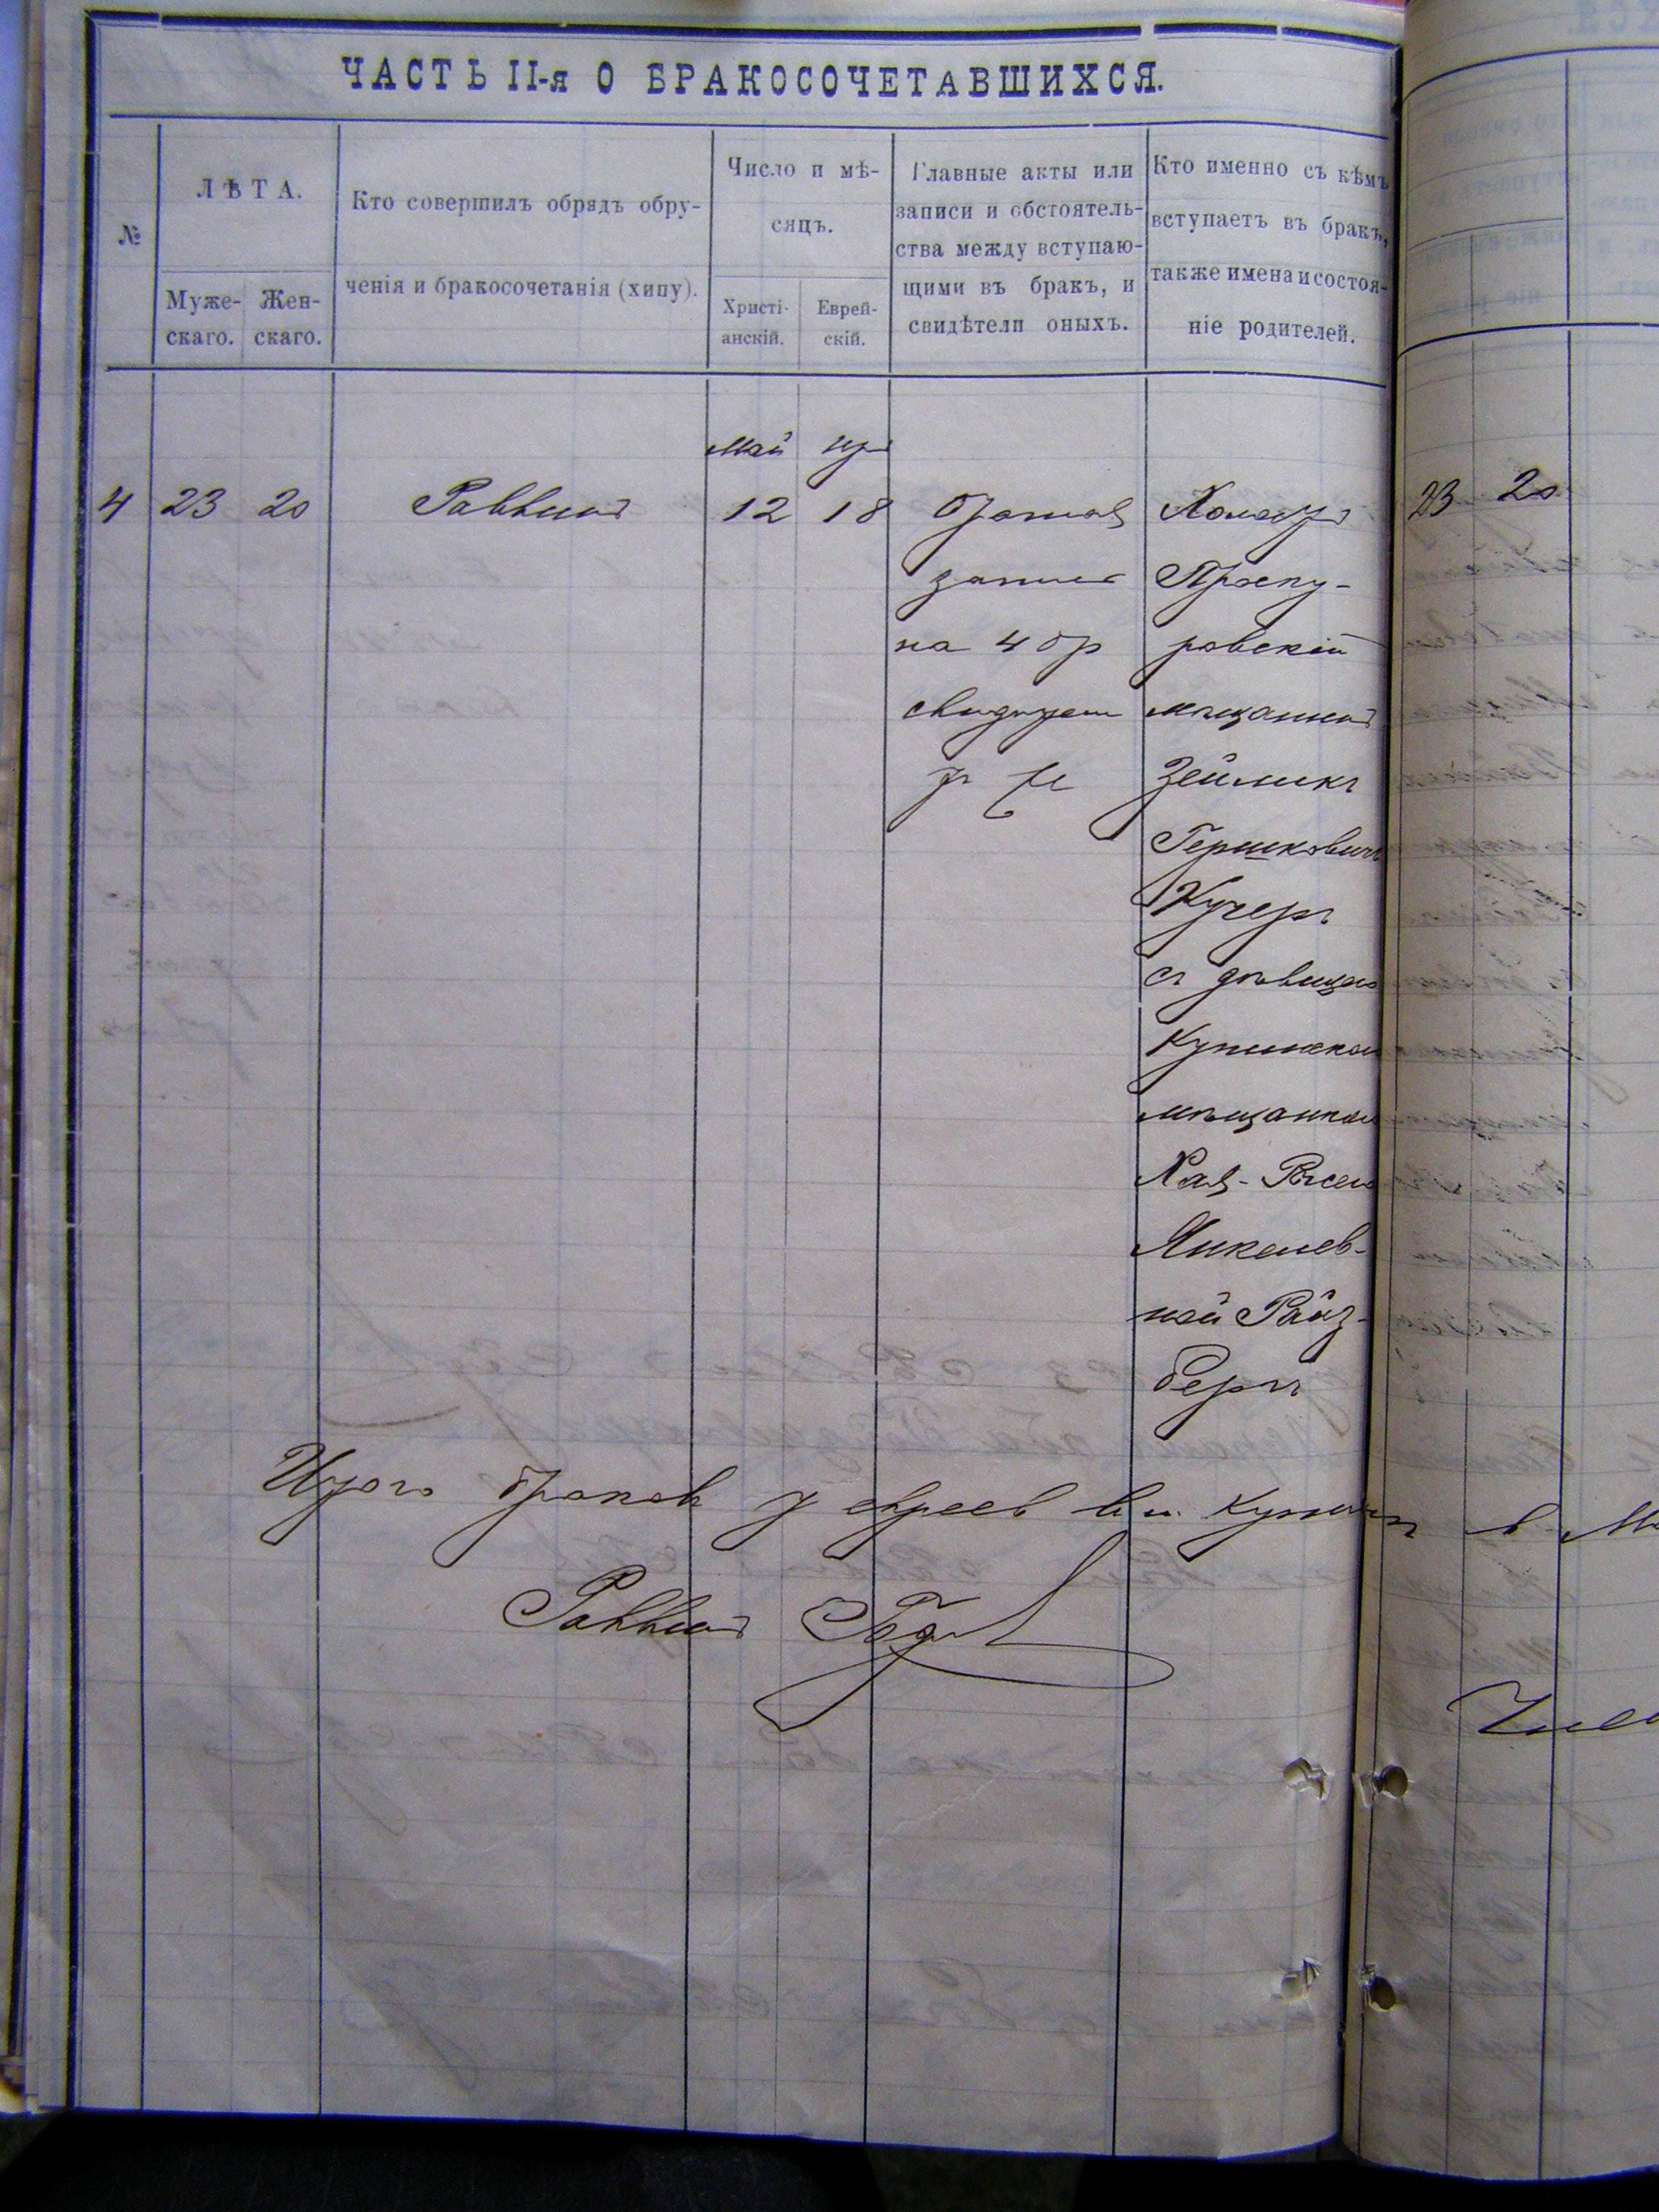 ЧАСТЬ II-я О БРАКОСОЧЕТАВШИХСЯ.
№
ЛѢТА.
Муже-
скаго.
Жен-
скаго.
Кто совершилъ обрядъ обру-
ченія и бракосочетанія (хипу).
Число и мѣ-
сяцъ.
Христі-
анскій.
Еврей-
скій.
Главные акты или
записи и обстоятель-
ства между вступаю-
щими въ бракъ, и
свидѣтели оныхъ.
Кто именно съ кѣмъ
вступаетъ въ бракъ,
также имена и состоя-
ніе родителей.
Май
4 23 20 Раввинъ 12 18
запись
на 4 бр
свидѣтели
Холостъ
Проску-
ровскій
мѣщанинъ
Зейликъ
Гершковичъ
Кучеръ
съ дѣвицею
Купинскою
мѣщанкою
Хая-
Янкелев-
ной Райз-
бергъ
23 20
Итого браковъ у евреев в м. Купинъ в
Раввинъ